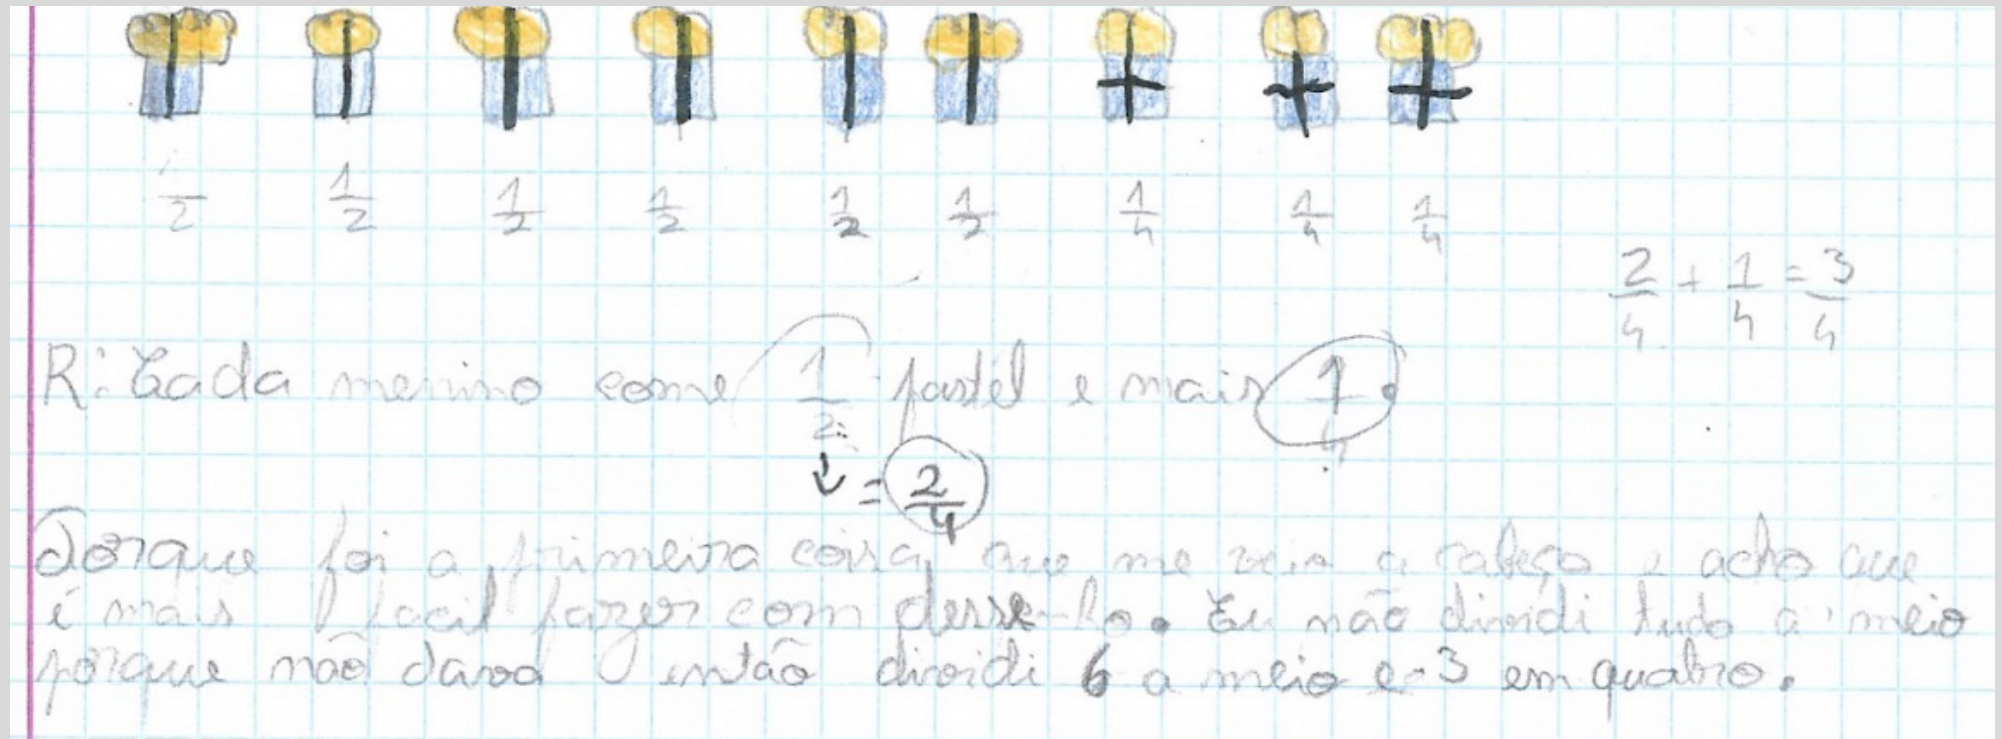 1/2 1/2 1/2 1/2 1/2 1/2 1/4 1/4 1/4
2/4 + 1/4 = 3/4
R: Cada menino come 1/2 pastel e mais 1/4.
= 2/4
Porque foi a primeira coisa que me veio a cabeça e acho que
é mais facil fazer com desenho. Eu não dividi tudo a meio
porque não dava então dividi 6 a meio e 3 em quatro.